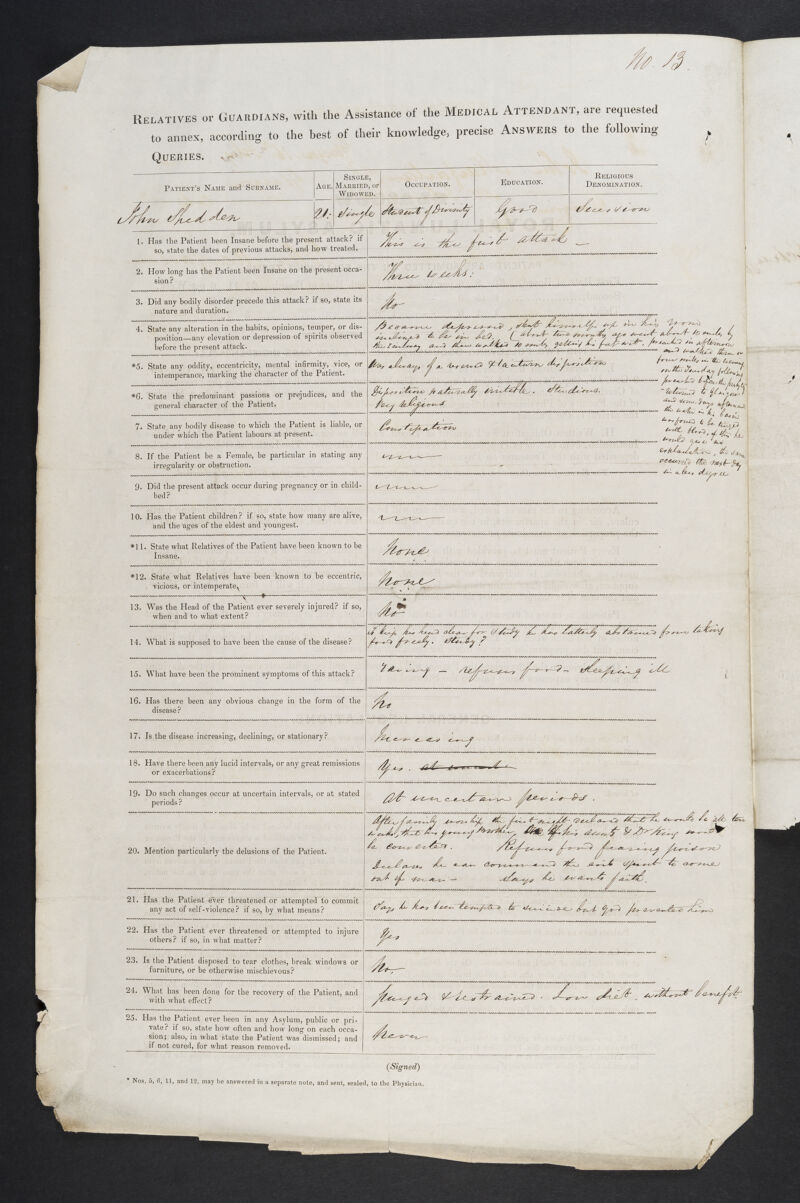 No. 13.
RELATIVES or GUARDIANS, with the Assistance of the MEDICAL ATTENDANT, are requested
to annex, according to the best of their knowledge, precise ANSWERS to the following
QUERIES.
PATIENT'S NAME and SURNAME.
AGE.
SINGLE,
MARRIED, or
WIDOWED.
OCCUPATION.
EDUCATION.
RELIGIOUS
DENOMINATION.
John Shedden
21.
Single
Student of Divinity
Good
Secession
1. Has the Patient been Insane before the present attack? if
so, state the dates of previous attacks, and how treated.
This is the first attack —
2. How long has the Patient been Insane on the present occa-
sion?
Three weeks:
3. Did any bodily disorder precede this attack? if so, state its
nature and duration.
No
4. State any alteration in the habits, opinions, temper, or dis-
position—any elevation or depression of spirits observed
before the present attack.
Became depressed, shut himself up in his room
inclined to be in bed. (about two months ago went about 10 miles by
the Railway and then walked 10 miles getting his feet wet. preached in afternoon
and walked
four miles in the evening
on the Tuesday following
preached before the
returned to Glasgow
and some days
the water in his basin
was found to be tinged
with blood, of this he
would give no
explanation, the same
occurred the next day
in a less degree
*5. State any oddity, eccentricity, mental infirmity, vice, or
intemperance, marking the character of the Patient.
Was always of a & taciturn disposition
*6. State the predominant passions or prejudices, and the
general character of the Patient.
Disposition naturally irritable. Studious.
Very Religious
7. State any bodily disease to which the Patient is liable, or
under which the Patient labours at present.
Constipation
8. If the Patient be a Female, be particular in stating any
irregularity or obstruction.
9. Did the present attack occur during pregnancy or in child-
bed?
10. Has the Patient children? if so, state how many are alive,
and the ages of the eldest and youngest.
*11. State what Relatives of the Patient have been known to be
Insane.
None
*12. State what Relatives have been known to be eccentric,
vicious, or intemperate.
None
13. Was the Head of the Patient ever severely injured? if so,
when and to what extent?
No
14. What is supposed to have been the cause of the disease?
to keep his head clear for Study he has latterly abstained from taking
food freely. Study?
15. What have been the prominent symptoms of this attack?
Raving — refuses food — Sleeping ill
16. Has there been any obvious change in the form of the
disease?
No
17. Is the disease increasing, declining, or stationary?
Increasing
18. Have there been any lucid intervals, or any great remissions
or exacerbations?
Yes.
19. Do such changes occur at uncertain intervals, or at stated
periods?
At uncertain periods.
20. Mention particularly the delusions of the Patient.
After family worship the first night declared that he would be ill two
weeks, that his young brother, his aunts & Dr King would
be converted. Refuses food fearing poison
Declares he can command the evil spirit to come
out of man — Says he wants faith.
21. Has the Patient ever threatened or attempted to commit
any act of self-violence? if so, by what means?
Says he has been tempted to suicide but God prevented him
22. Has the Patient ever threatened or attempted to injure
others? if so, in what matter?
Yes
23. Is the Patient disposed to tear clothes, break windows or
furniture, or be otherwise mischievous?
No.
24. What has been done for the recovery of the Patient, and
with what effect?
Purged & restrained. Low diet. without benefit
25. Has the Patient ever been in any Asylum, public or pri-
vate? if so, state how often and how long on each occa-
sion; also, in what state the Patient was dismissed; and
if not cured, for what reason removed.
Never
(Signed)
* Nos. 5, 6, 11, and 12, may be answered in a separate note, and sent, sealed, to the Physician.